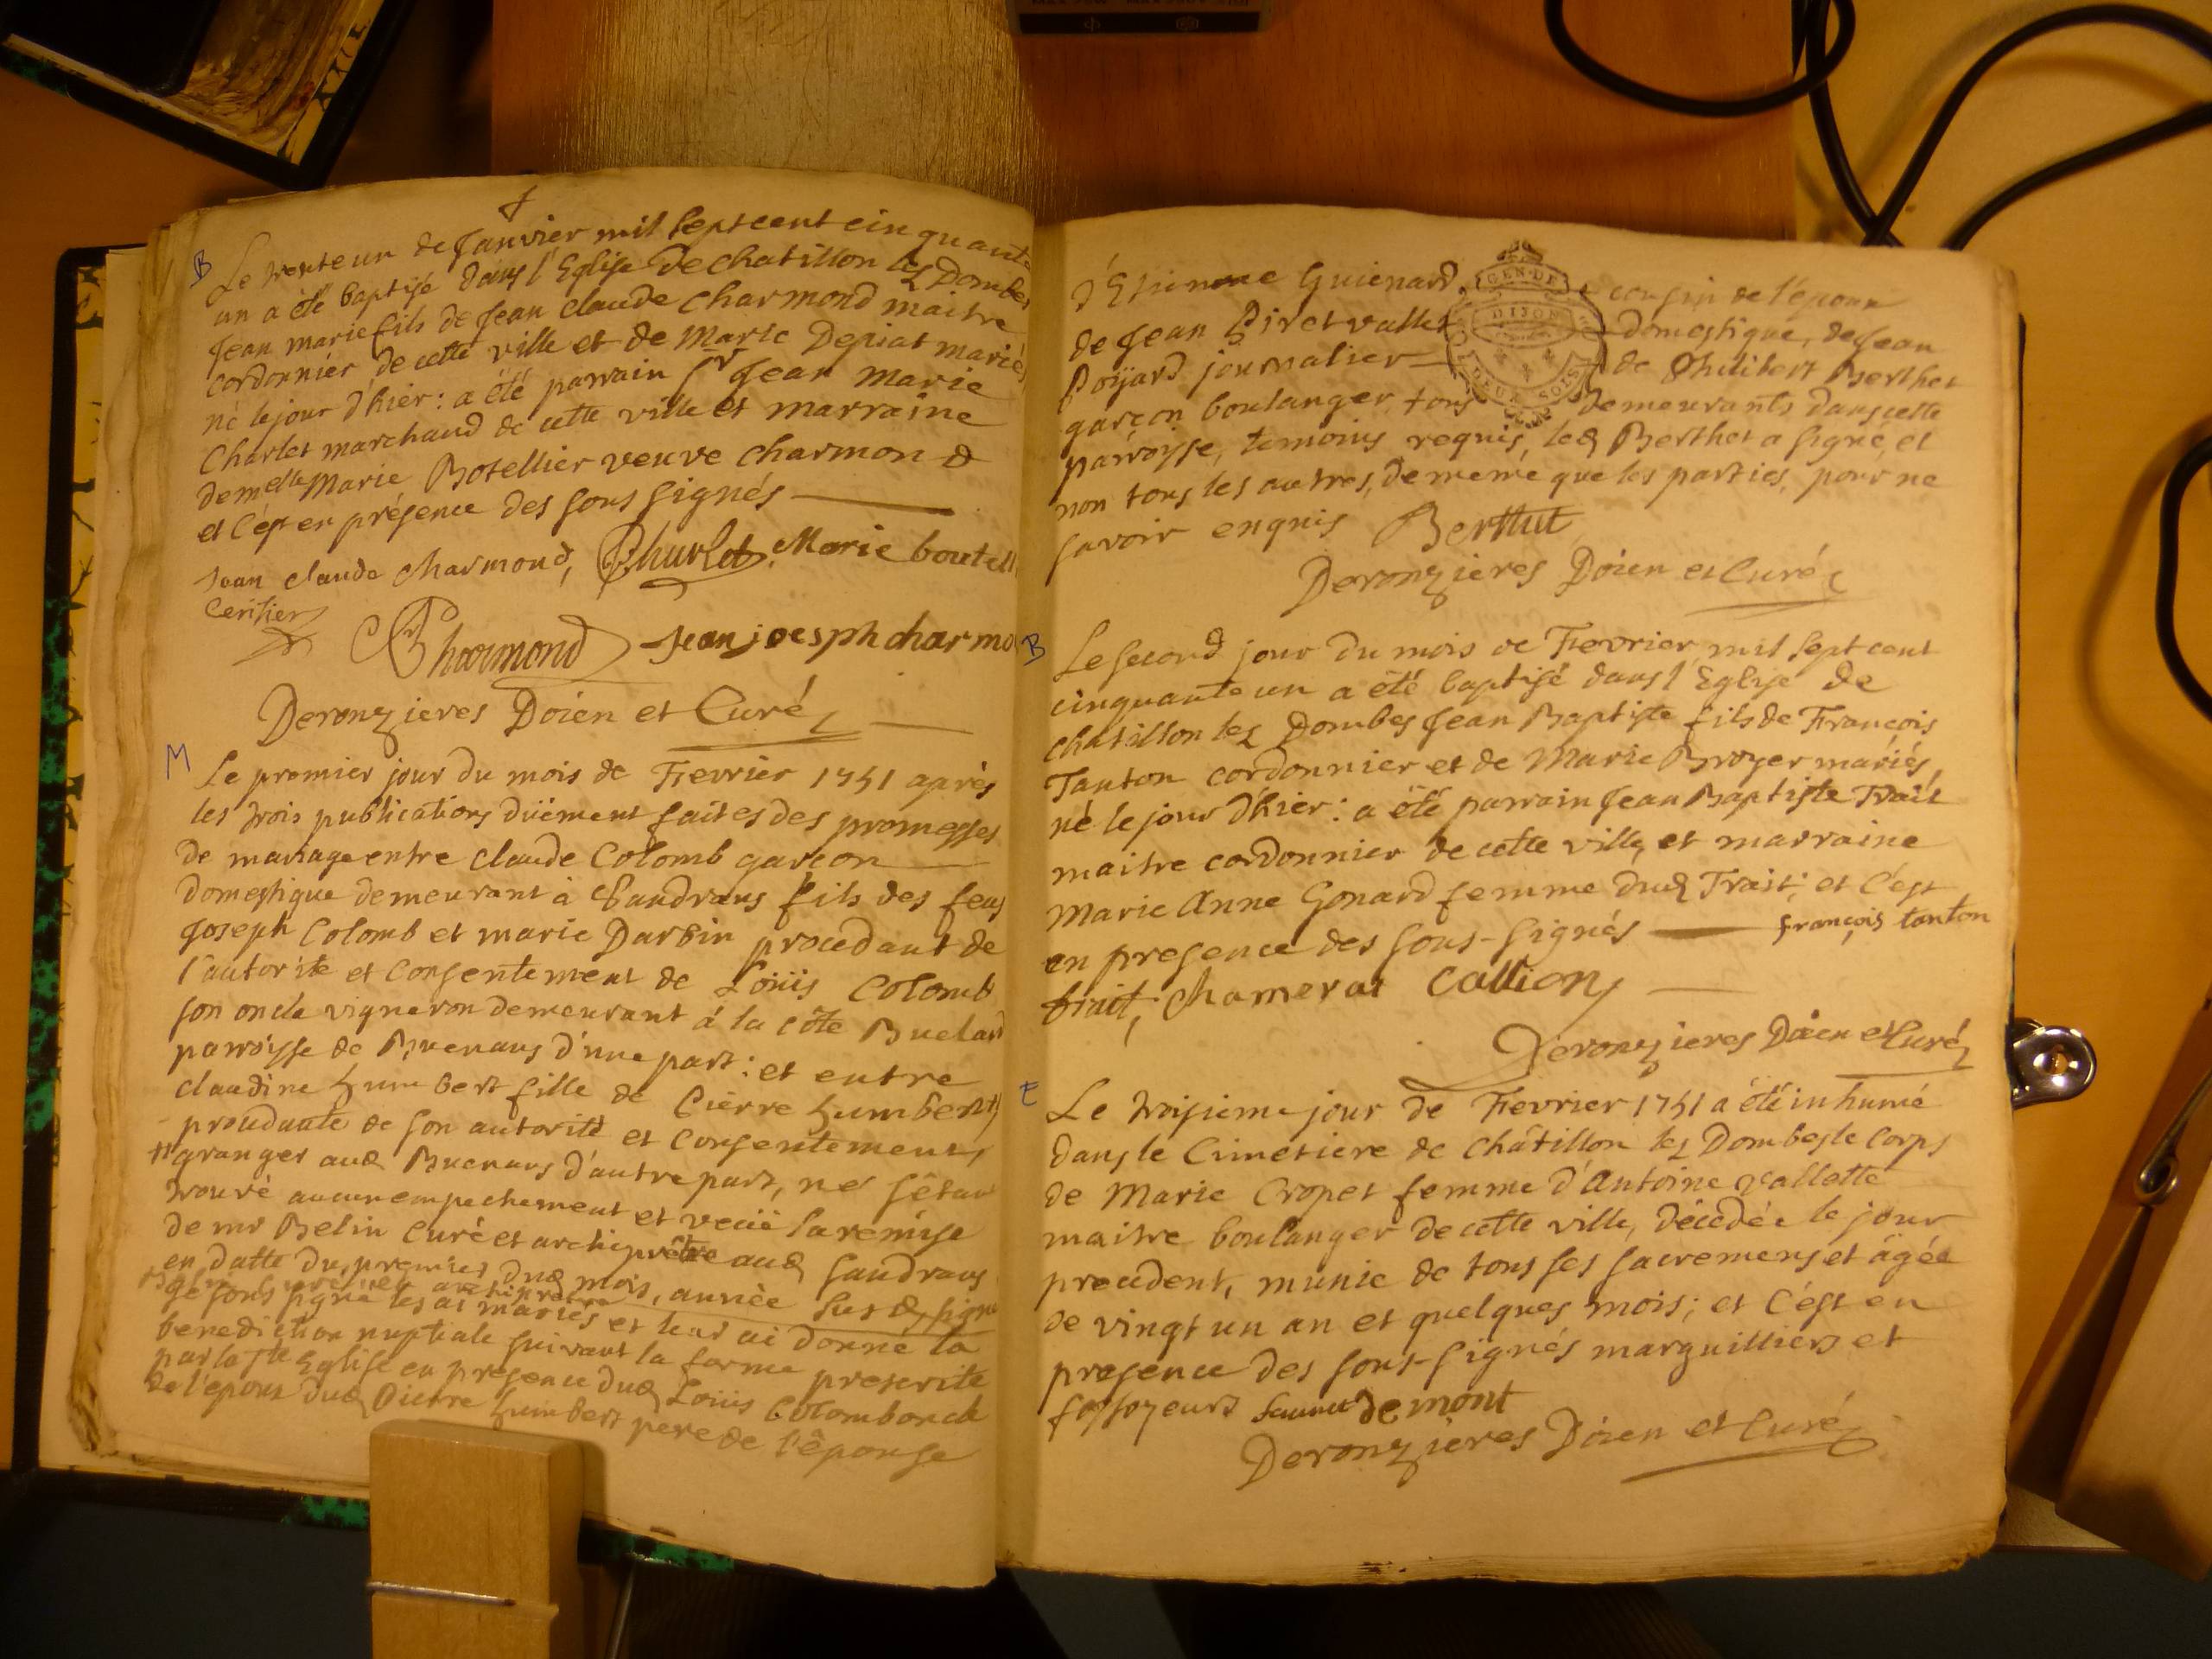 B
Le trente un de Janvier mil sept cent cinquante
un a été baptisé dans l'Eglise de chatillon lez Dombes
Jean marie fils de Jean claude Charmond maitre
cordonnier de cette ville et de Marie Depiat mariés
né le jour d'hier: a été parrain Sr Jean Marie
Charlet marchand de cette ville et marraine
demelle Marie Botellier veuve charmond
et c'est en présence des sous signés
Jean claude charmond, Charlet, Marie boutell
Ceritier
Charmond Jean joesph charmo
Deronzieres Doien et Curé
M
Le premier jour du mois de Fievrier 1751 après
les trois publications düement faites des promesses
de mariage entre claude Colomb garçon
domestique demeurant à Sandrans fils des feus
Joseph Colomb et marie Darbin procedant de
l'autorité et consentement de Loüis Colomb
son oncle vigneron demeurant à la côte Buelard
parroisse de Buenans d'une part: et entre
claudine humbert fille de Pierre humbert
procedante de son autorité et consentement
granger aud Buenans d'autre part, ne s'étant
trouvé aucun empechement et veüe la remise
de mr Belin Curé et archiprêtre aud Sandrans
en datte du premier dud mois, année susd, signé
je sous signé les ai mariés et leur ai donné la
benediction nuptiale suivant la forme prescrite
par la Ste Eglise en presence dud Loüis Colomb oncle
de l'epoux dud Pierre humbert pere de l'épouse
d'Etienne Guienard cousin de l'époux
de Jean Piret vallet domestique, de Jean
Poijard journalier de Philibert Berthet
garçon boulanger, tous demeurants dans cette
parroysse, temoins requis, led Berthet a signé, et
non tous les autres, de meme que les parties, pour ne
savoir enquis Berthet
Deronzieres Doien et Curé
B
Le second jour du mois de Fievrier mil sept cent
cinquante un a été baptisé dans l'Eglise de
chatillon lez Dombes Jean Baptiste fils de François
Tanton cordonnier et de Marie Broyer mariés,
né le jour d'hier: a été parrain Jean Baptiste Trait
maitre cordonnier de cette ville, et marraine
Marie Anne Gonard femme dud Trait; et c'est
en presence des sous-signés françois tanton
trait, Chamerat Callion
Deronzieres Doien et Curé
E
Le troisieme jour de Fievrier 1751 a été inhumé
dans le Cimetiere de châtillon lez Dombes le corps
de Marie Cropet femme d'Antoine vallette
maitre boulanger de cette ville, décedée le jour
precedent, munie de tous ses sacremens et âgée
de vingt un an et quelques mois; et c'est en
presence des sous-signés marguilliers et
fossoyeurs demont
Deronzières Doien et Curé
GEN·DE
DIJON
DEUX SOLS